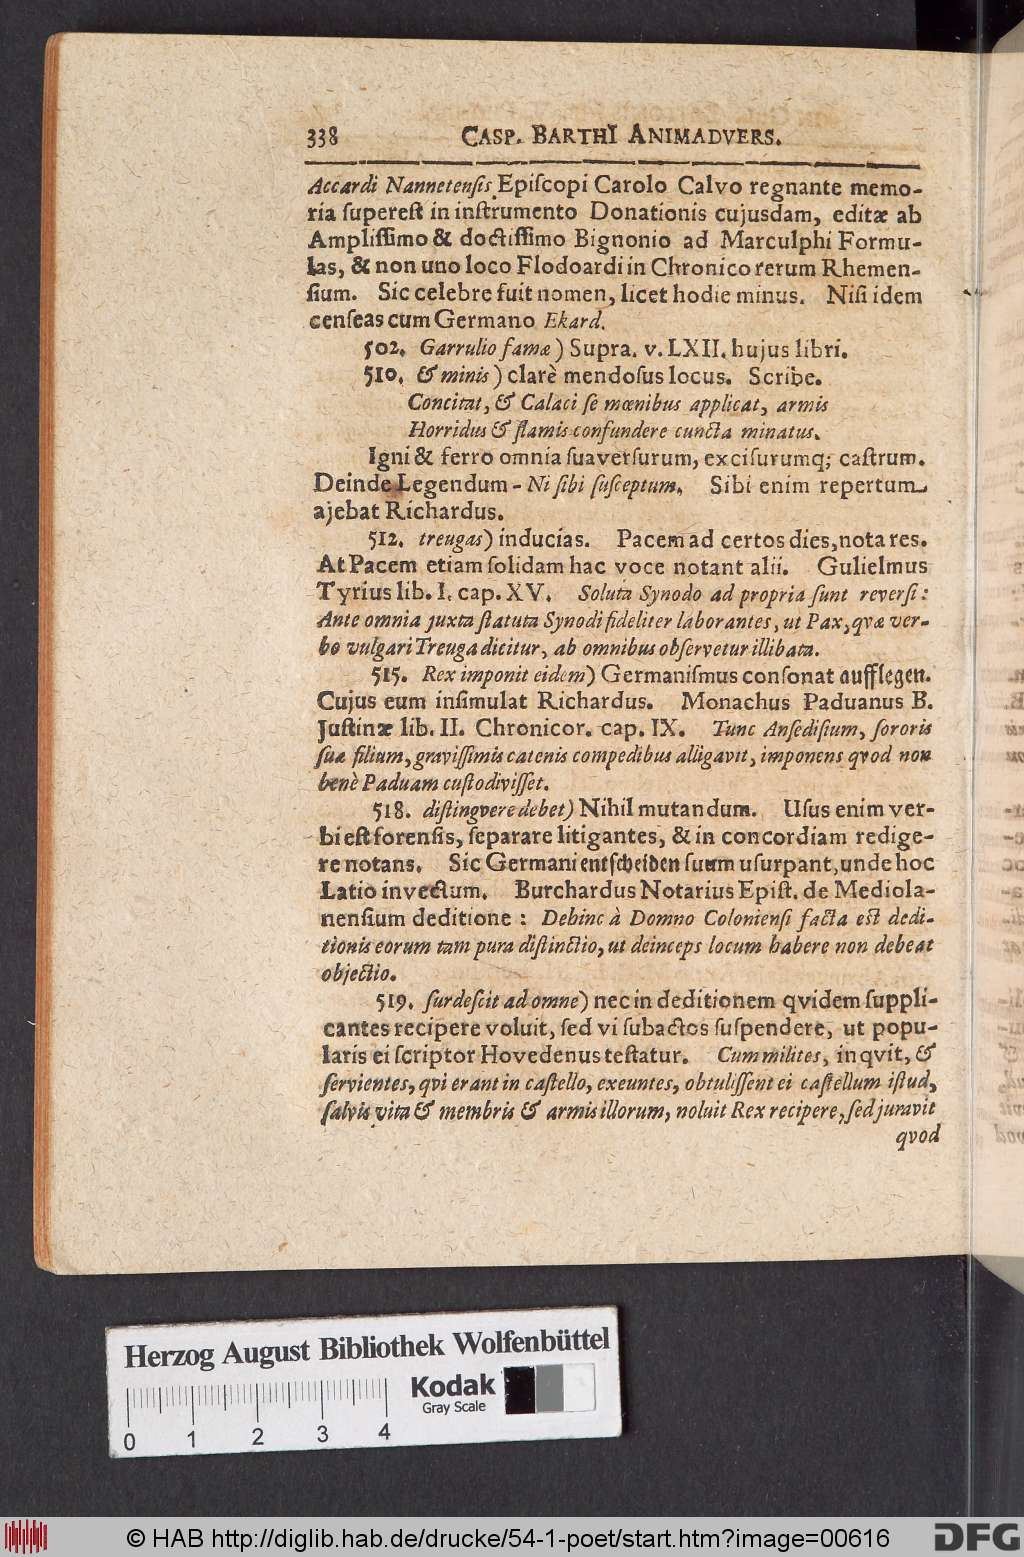 338 CASP. BARTHI ANIMADVERS.
Accardi Nannetensis Episcopi Carolo Calvo regnante memo-
ria superest in instrumento Donationis cujusdam, editæ ab
Amplissimo & doctissimo Bignonio ad Marculphi Formu-
las, & non uno loco Flodoardi in Chronico rerum Rhemen-
sium. Sic celebre fuit nomen, licet hodie minus. Nisi idem
censeas cum Germano Ekard.
502. Garrulio famæ) Supra. v. LXII. hujus libri.
510. & minis) clarè mendosus locus. Scribe.
Concitat, & Calaci se mœnibus applicat, armis
Horridus & flamis confundere cuncta minatus.
Igni & ferro omnia suaversurum, excisurumq; castrum.
Deinde Legendum - Ni sibi susceptum. Sibi enim repertum
ajebat Richardus.
512. treugas) inducias. Pacem ad certos dies, nota res.
At Pacem etiam solidam hac voce notant alii. Gulielmus
Tyrius lib. I. cap. XV. Soluta Synodo ad propria sunt reversi:
Ante omnia juxta statuta Synodi fideliter laborantes, ut Pax, qvæ ver-
bo vulgari Treuga dicitur, ab omnibus observetur illibata.
515. Rex imponit eidem) Germanismus consonat aufflegen.
Cujus eum insimulat Richardus. Monachus Paduanus B.
Justinæ lib. II. Chronicor. cap. IX. Tunc Ansedisium, sororis
suæ filium, gravissimis catenis compedibus alligavit, imponens qvod non
benè Paduam custodivisset.
518. distingvere debet) Nihil mutandum. Usus enim ver-
bi est forensis, separare litigantes, & in concordiam redige-
re notans. Sic Germani entscheiden suum usurpant, unde hoc
Latio invectum. Burchardus Notarius Epist. de Mediola-
nensium deditione : Dehinc à Domno Coloniensi facta est dedi-
tionis eorum tam pura distinctio, ut deinceps locum habere non debeat
objectio.
519. surdescit ad omne) nec in deditionem qvidem suppli-
cantes recipere voluit, sed vi subactos suspendere, ut popu-
laris ei scriptor Hovedenus testatur. Cum milites, inqvit, &
servientes, qvi erant in castello, exeuntes, obtulissent ei castellum istud,
salvis vita & membris & armis illorum, noluit Rex recipere, sed juravit
qvod
Herzog August Bibliothek Wolfenbüttel
Kodak
Gray Scale
0 1 2 3 4
© HAB http://diglib.hab.de/drucke/54-1-poet/start.htm?image=00616
DFG